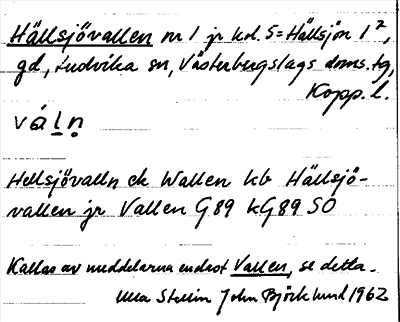 Hällsjövallen nr 1 jr kol. 5 = Hällsjön 1²,
gd, Ludvika sn, Västerbergslags doms.tg,
Kopp. l.
váln
Hellsjövalln ek Wallen kb Hällsjö-
vallen jr Vallen G89 kG89 SO
Kallas av meddelarna endast Vallen, se detta.
Ulla Stelin John Björklund 1962